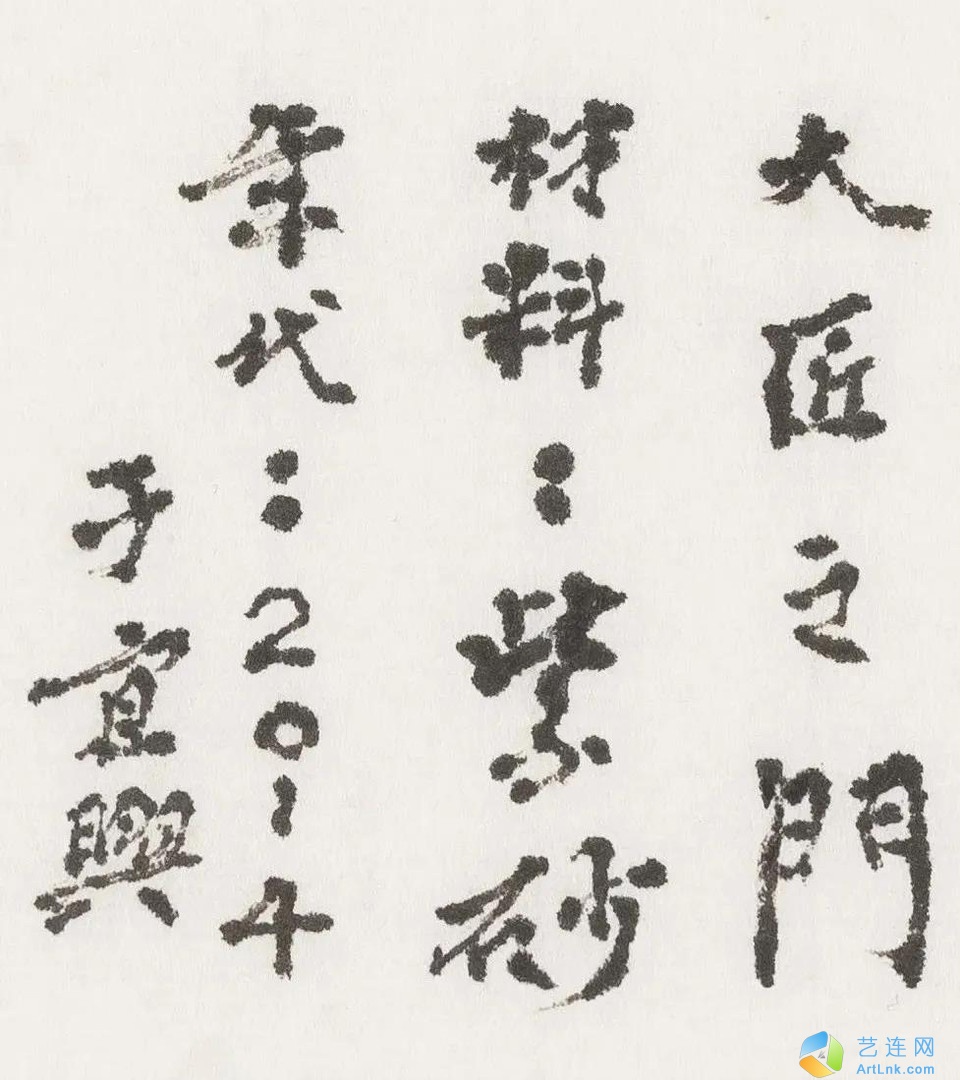 大匠之門
材料：紫砂
年代：2014
于宜興
艺连网
ArtLnk.com